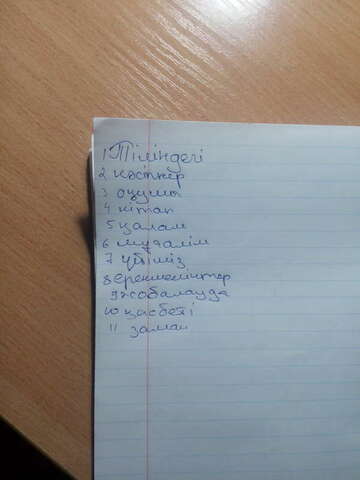 1 Тіліндегі
2 кәсіпкер
3 оқушы
4 кітап
5 қалам
6 мұғалім
7 үйіміз
8 ерекшеліктер
9 жобалауда
10 қасбеті
11 заман